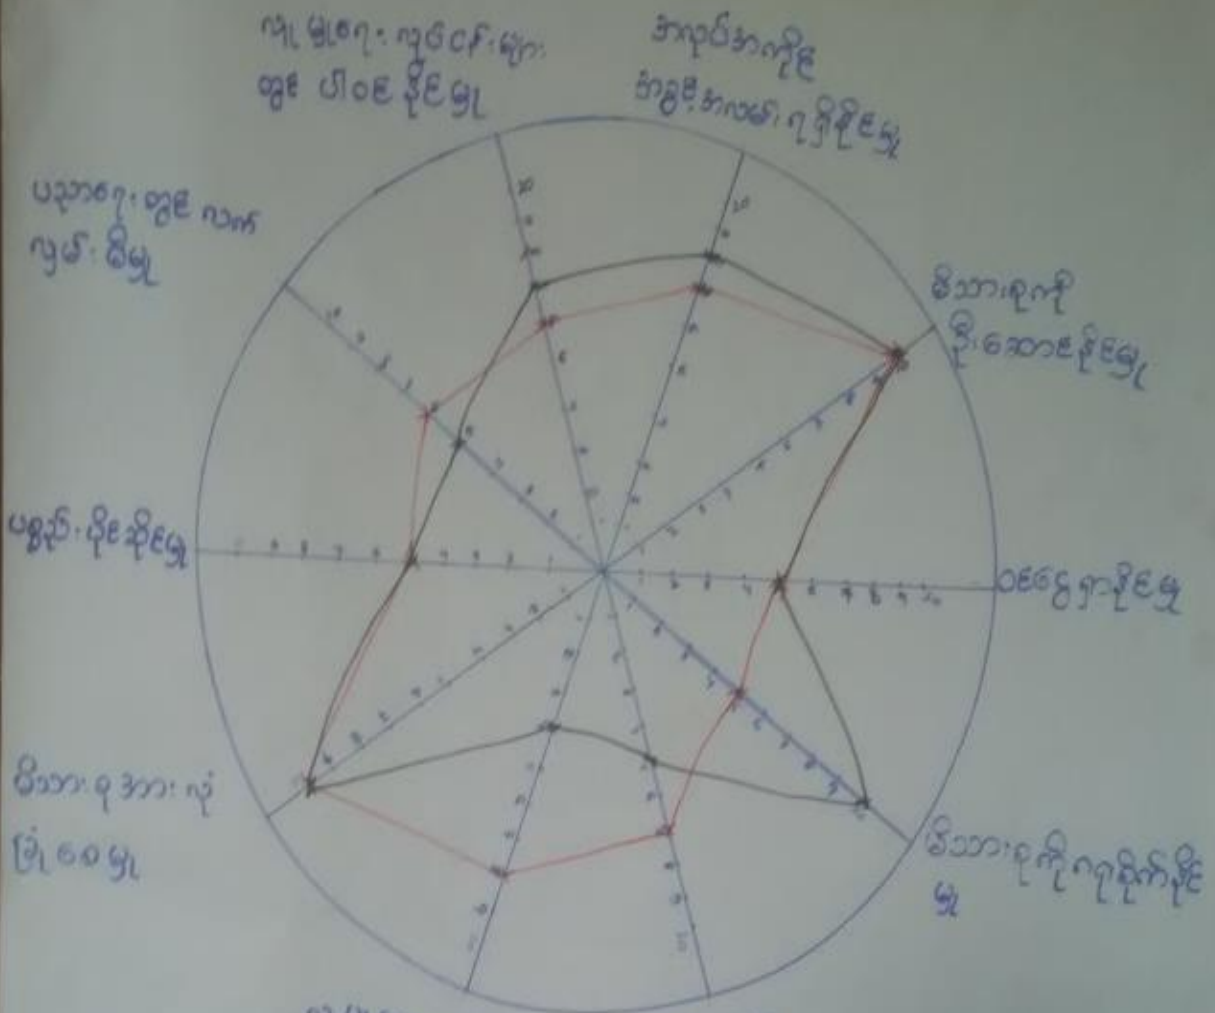 လူမှုရေးလုပ်ငန်းများ
တွင် ပါဝင်နိုင်မှု
အလုပ်အကိုင်
အခွင့်အလမ်းရရှိနိုင်မှု
ပညာရေးတွင် လက်
လှမ်းမီမှု
မိသားစုကို
ဦးဆောင်နိုင်မှု
ပစ္စည်းပိုင်ဆိုင်မှု
ဝင်ငွေရှာနိုင်မှု
မိသားစုအား လုံ
ခြုံစေမှု
မိသားစုကိုဂရုစိုက်နိုင်
မှု